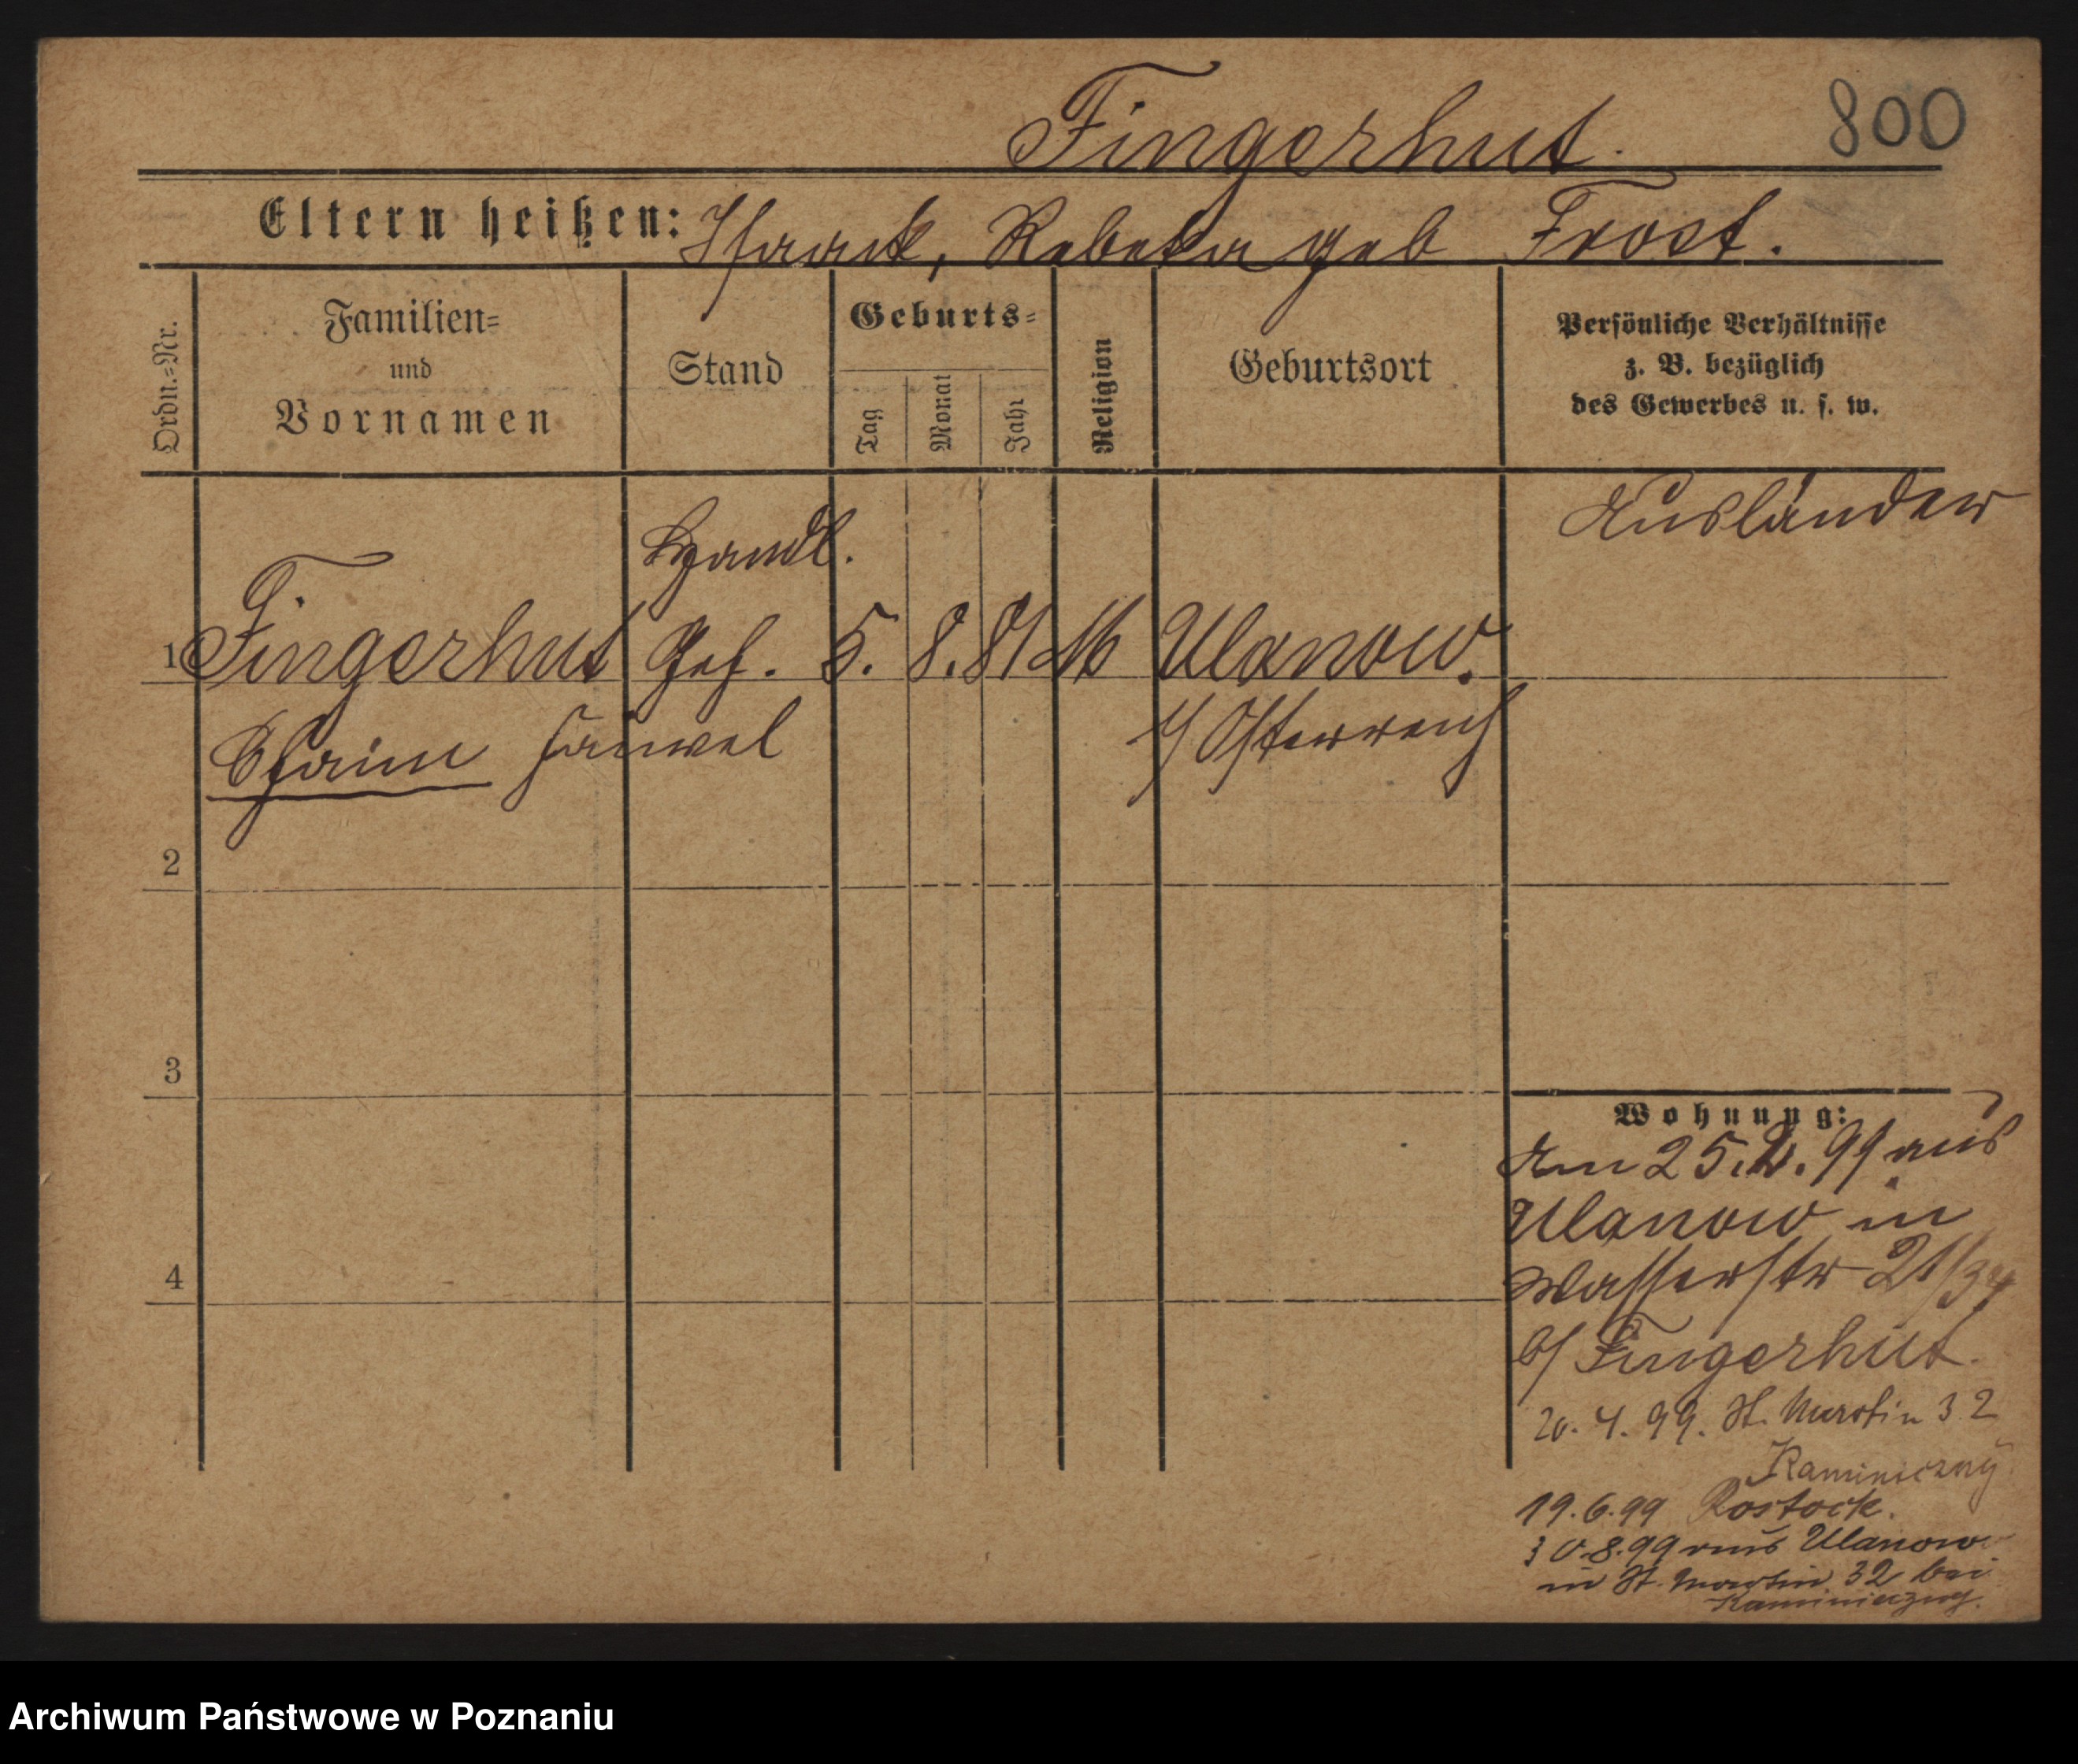 Fingerhut.
800
Eltern heißen: Isaack, Rebeka geb Frost.
Ordn.=Nr.
Familien=
und
Vornamen
Stand
Geburts=
Tag
Monat
Jahr
Religion
Geburtsort
Persönliche Verhältnisse
z. B. bezüglich
des Gewerbes u. s. w.
Ausländer
Handl.
1 Fingerhut Geh. 5. 8. 81 Ulanow.
Chaim i/Österreich
2
3
4
Wohnung:
Am 25.2.99 aus
Ulanow in
Wasserstr 21/
b/ Fingerhut.
20. 4. 99. St. Martin 32
Kaminiczny
19.6.99 Rostock.
30.8.99 aus Ulanow
in St. Martin 32 bei
Archiwum Państwowe w Poznaniu